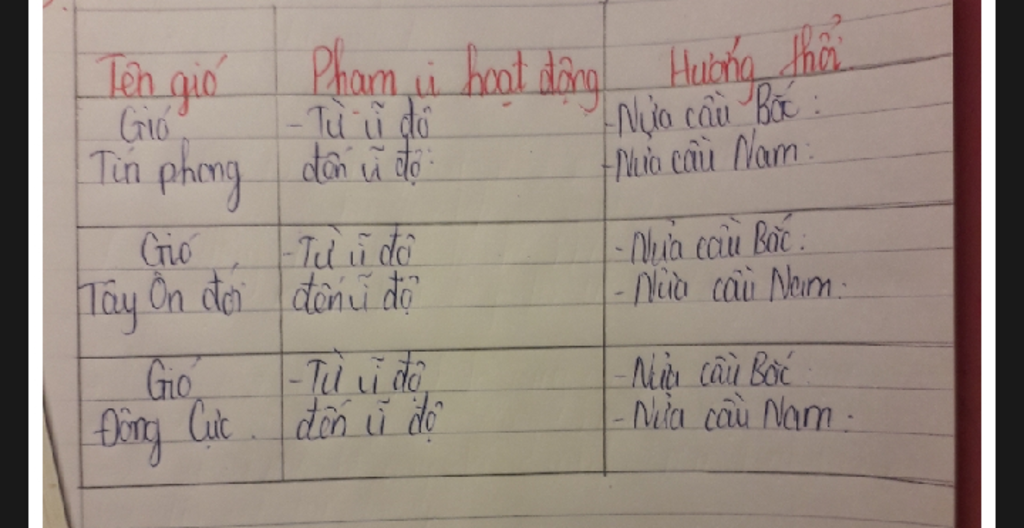 Tên gió Phạm vi hoạt động Hướng thổi
Gió - Từ vĩ độ - Nửa cầu Bắc:
Tín phong đến vĩ độ - Nửa cầu Nam:
Gió - Từ vĩ độ - Nửa cầu Bắc:
Tây Ôn đới đến vĩ độ - Nửa cầu Nam:
Gió - Từ vĩ độ - Nửa cầu Bắc
Đông Cực. đến vĩ độ - Nửa cầu Nam: